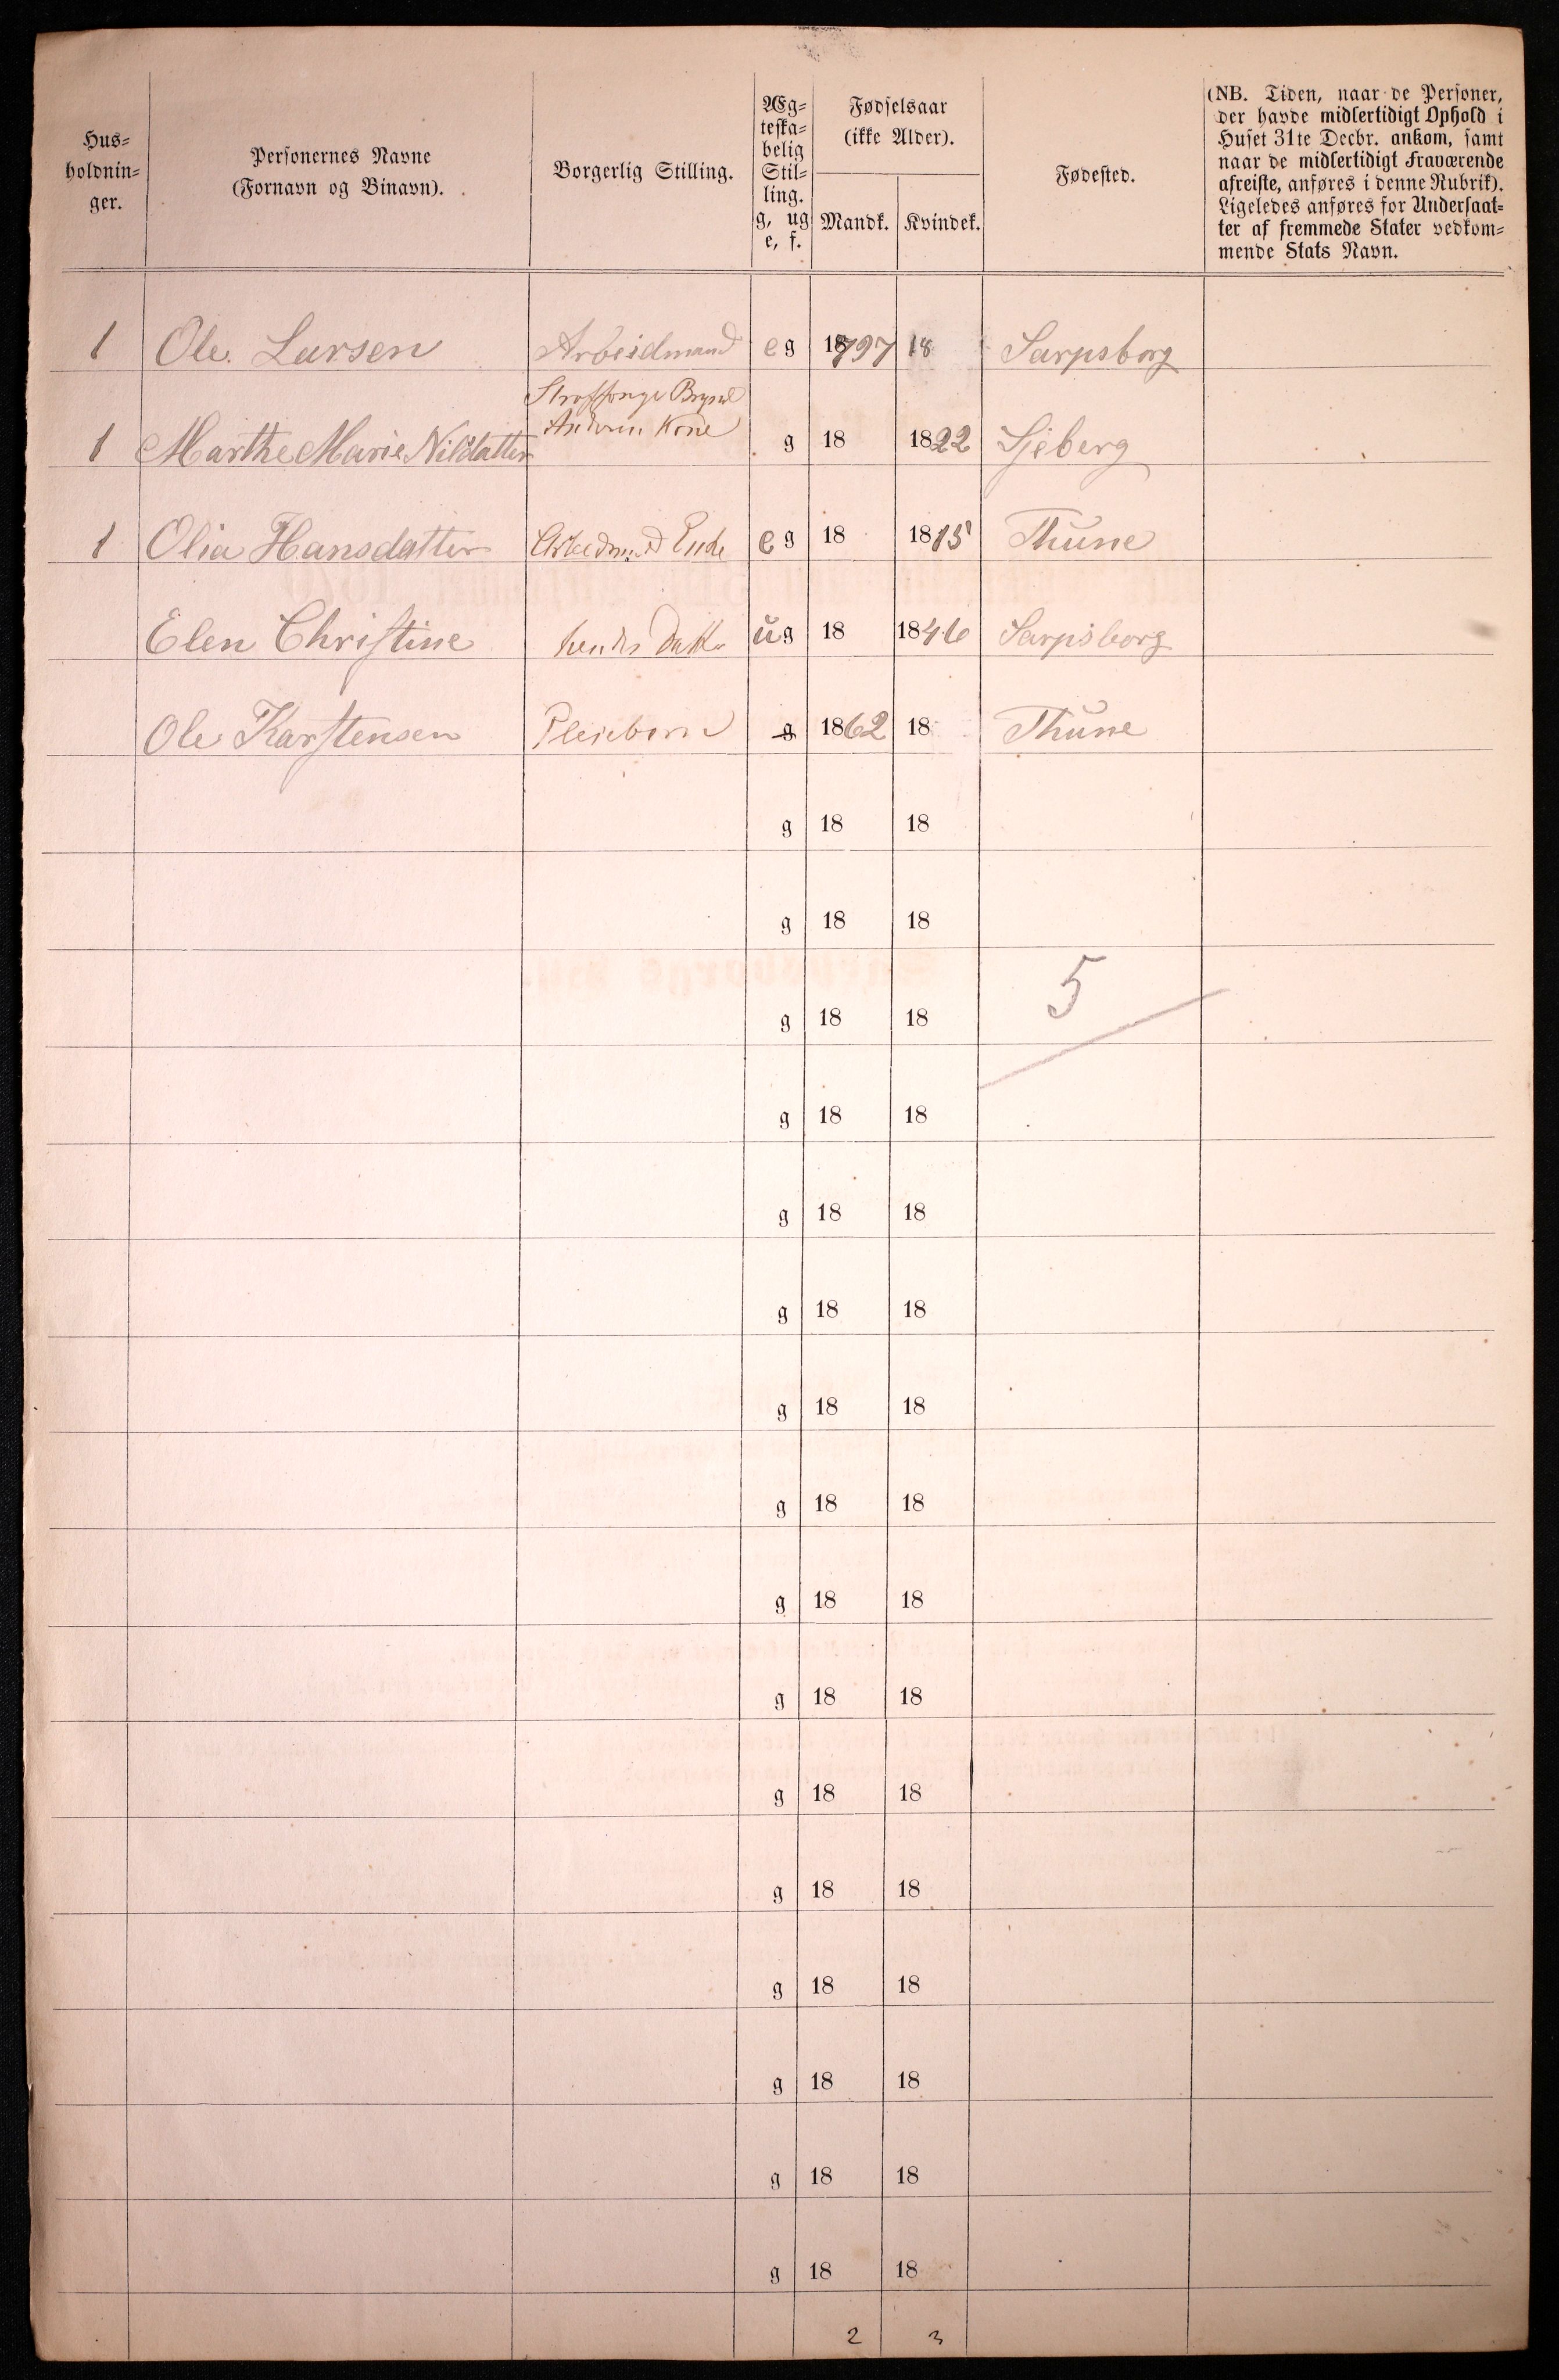 Hus=
holdnin=
ger.
Personernes Navne
(Fornavn og Binavn).
Borgerlig Stilling.
Æg=
teska=
belig
Stil=
ling.
g, ug
e, f.
Fødselsaar
(ikke Alder).
Mandk. Kvindek.
Fødested.
(NB. Tiden, naar de Personer,
der havde midlertidigt Ophold i
Huset 31te Decbr. ankom, samt
naar de midlertidigt Fraværende
afreiste, anføres i denne Rubrik).
Ligeledes anføres for Undersaat=
ter af fremmede Stater vedkom=
mende Stats Navn.
1 Ole Larsen Arbeidmand e g 1797 18 Sarpsborg
Kone
1 Marthe Marie Nilsdatter g 18 1822 Sjeberg
1 Olia Hansdatter Enke e g 18 1815 Thune
Elen Christine hendes Datter ug 18 1846 Sarpsborg
Ole Karstensen Pleiebarn g 1862 18 Thune
g 18 18
g 18 18
5
g 18 18
g 18 18
g 18 18
g 18 18
g 18 18
g 18 18
g 18 18
g 18 18
g 18 18
g 18 18
g 18 18
g 18 18
g 18 18
g 18 18
2 3